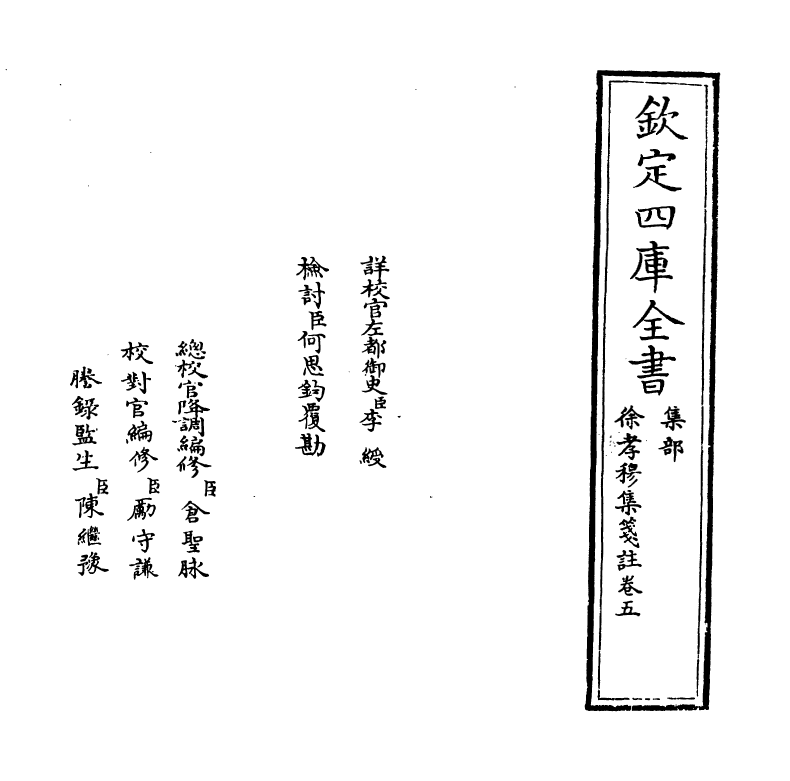 欽定四庫全書
集部
徐孝穆集箋註卷五
詳校官左都御史臣李綬
檢討臣何思鈞覆勘
總校官降調編修臣倉聖脉
校對官編修臣勵守謙
謄錄監生臣陳繼豫